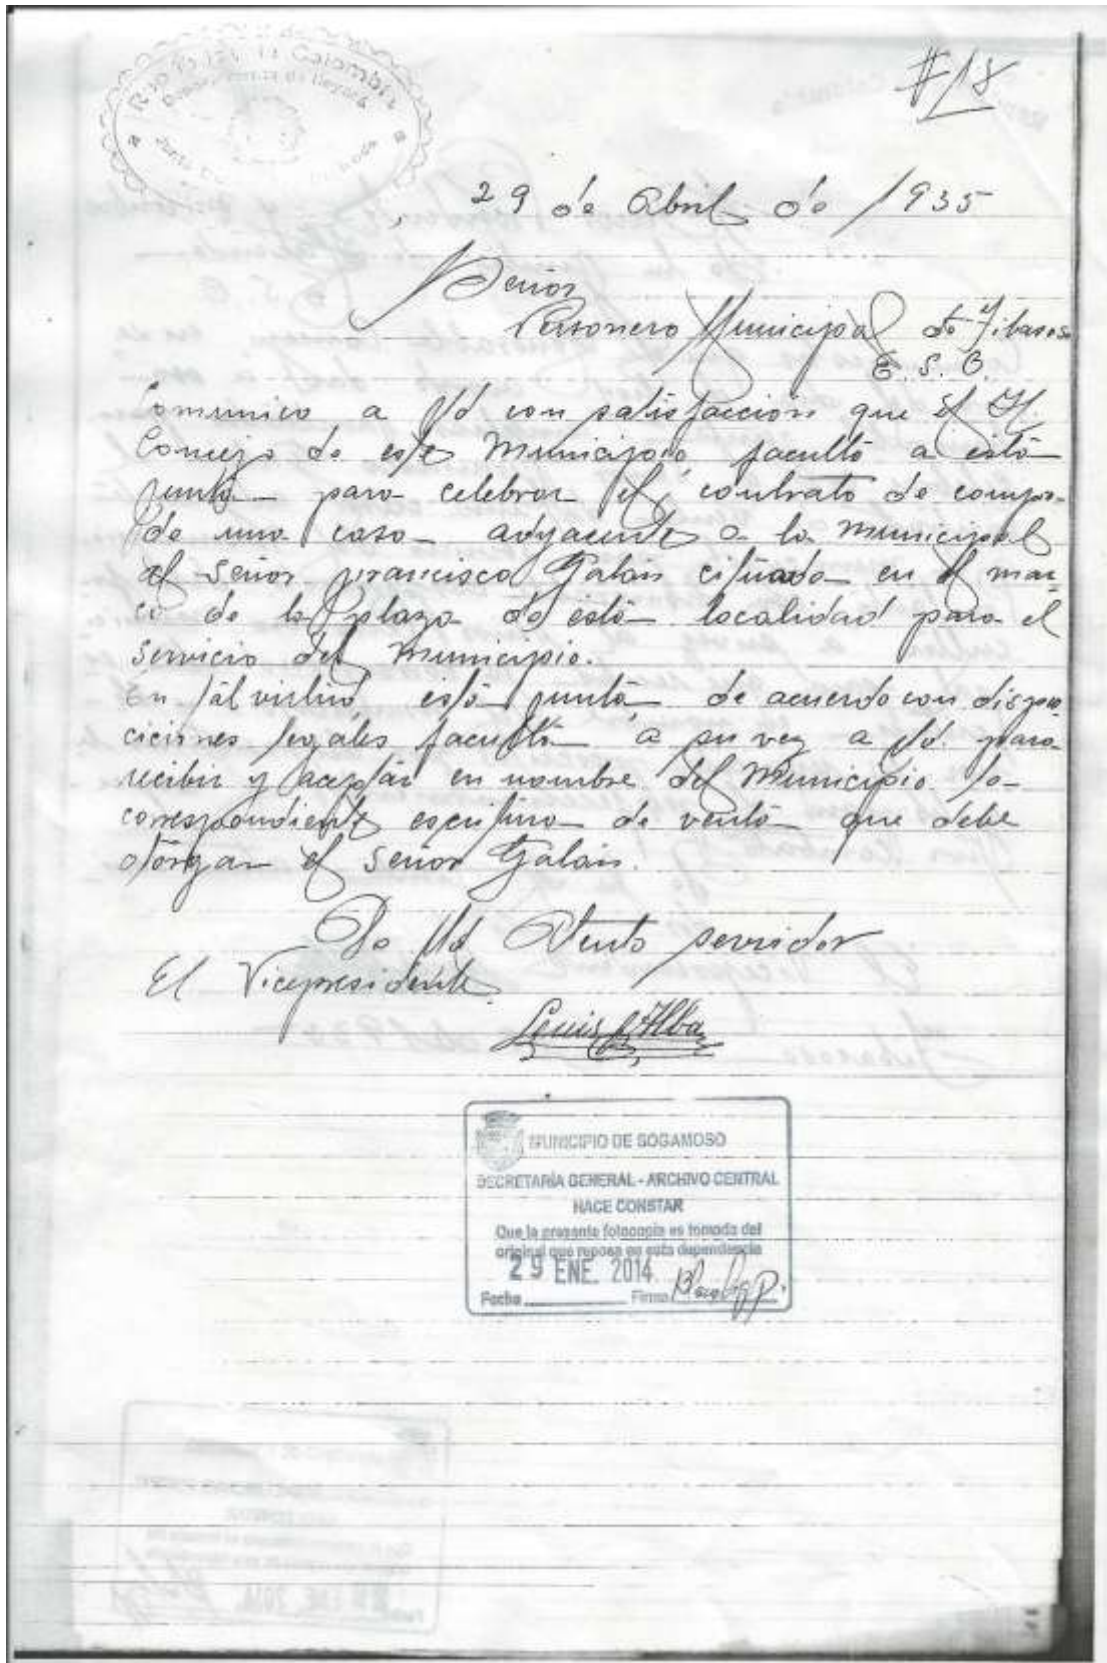 República de Colombia
Departamento de Boyacá
#18
29 de Abril de 1935
Señor
Personero Municipal de Tibasosa
E. S. O.
Comunico a Ud con satisfacción que el H.
Concejo de este Municipio, facultó a está
Junta para celebrar el contrato de compra
de una casa adyacente a la municipal
al señor francisco Galán cituada en el mar-
co de la plaza de está localidad para el
servicio del municipio.
En tál virtud, está junta de acuerdo con dispo-
ciciones legales facultá a su vez a Ud. para
recibir y aceptár en nombre del Municipio la
correspondiente escritura de venta que debe
otorgar el señor Galán.
De Ud Atento servidor
El Vicepresidente
Luis Alba
MUNICIPIO DE SOGAMOSO
SECRETARÍA GENERAL - ARCHIVO CENTRAL
HACE CONSTAR
Que la presente fotocopia es tomada del
original que reposa en esta dependencia
29 ENE. 2014
Fecha Firma